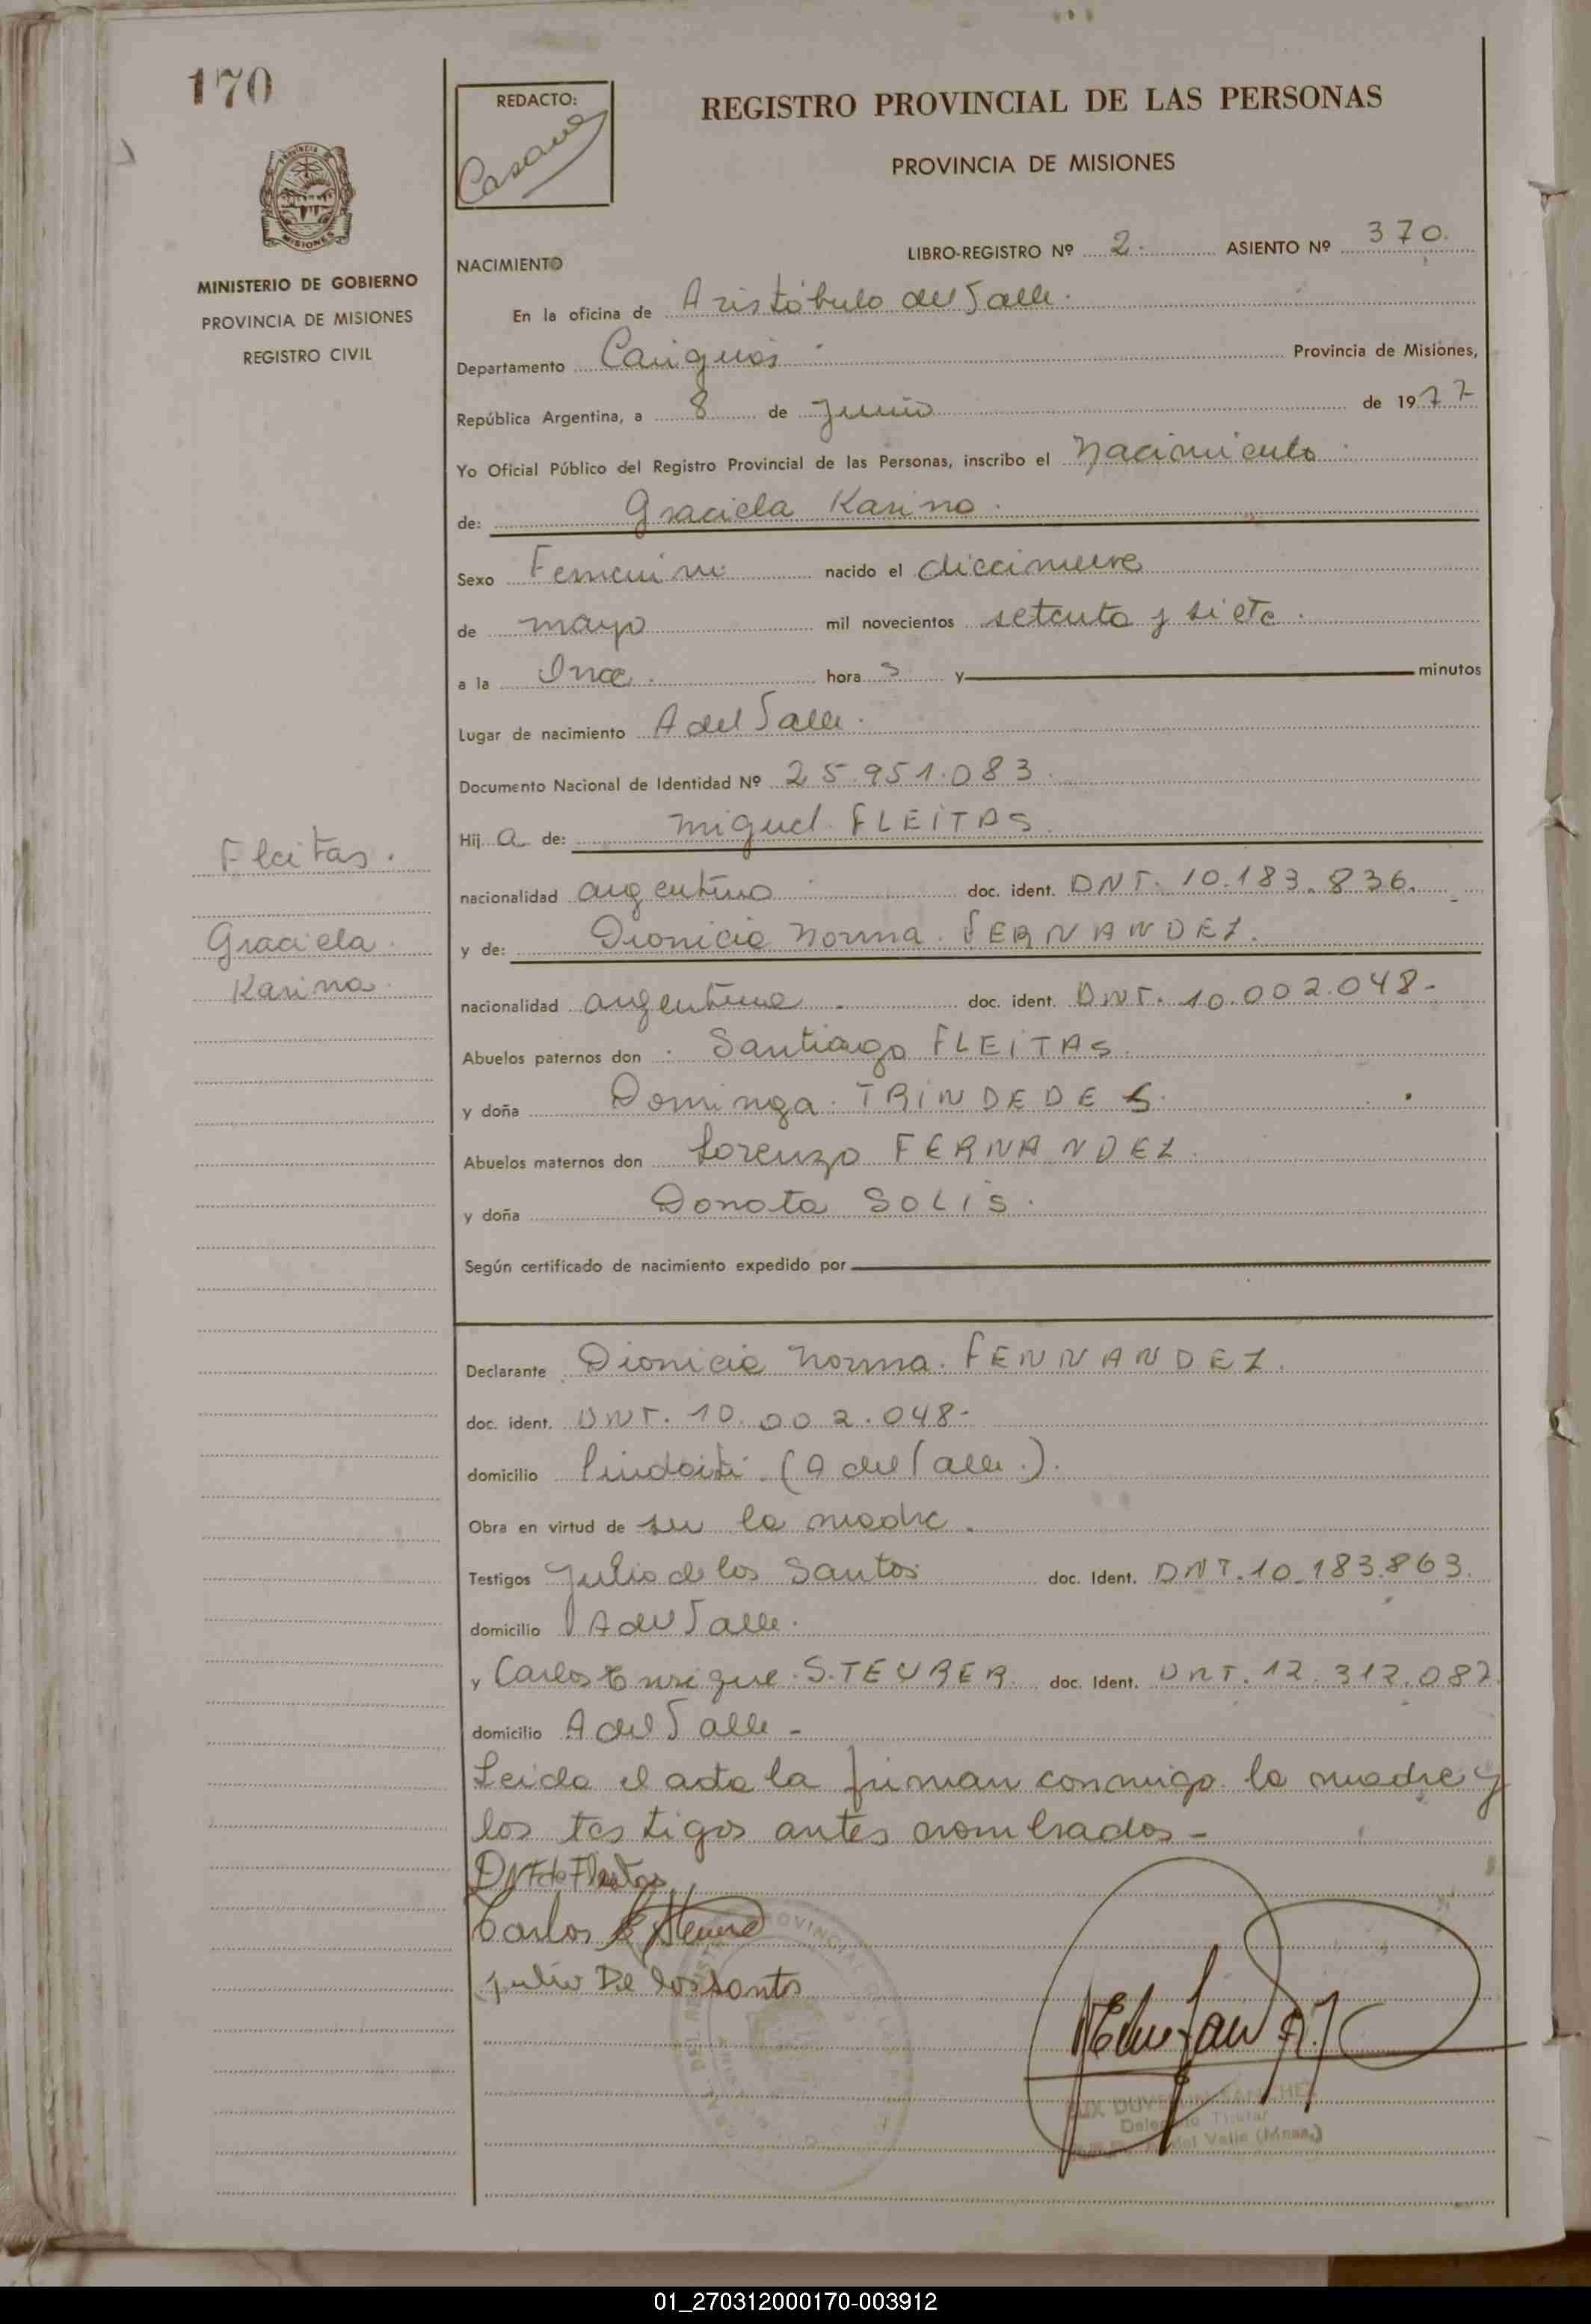 170
REDACTO:
REGISTRO PROVINCIAL DE LAS PERSONAS
PROVINCIA DE MISIONES
MISIONES
MINISTERIO DE GOBIERNO
PROVINCIA DE MISIONES
REGISTRO CIVIL
LIBRO-REGISTRO Nº 2. ASIENTO Nº 370.
NACIMIENTO
En la oficina de Aristóbulo del Valle.
Departamento Cainguás Provincia de Misiones,
República Argentina, a 8 de Junio de 1977
Yo Oficial Público del Registro Provincial de las Personas, inscribo el nacimiento
de: Graciela Karina.
Sexo Femenino nacido el diecinueve
de mayo mil novecientos setenta y siete.
a la Once. hora s y minutos
Lugar de nacimiento A del Valle.
Documento Nacional de Identidad Nº 25.951.083.
Hij a de: Miguel FLEITAS.
nacionalidad argentino doc. ident. DNI. 10.183.836.
y de: Dionicia Norma. FERNANDEZ.
nacionalidad argentina doc. ident. DNI. 10.002.048-
Fleitas.
Graciela.
Karina.
Abuelos paternos don Santiago FLEITAS.
y doña Dominga. TRINDEDES.
Abuelos maternos don Lorenzo FERNANDEZ.
y doña Donata SOLIS.
Según certificado de nacimiento expedido por
Declarante Dionicia Norma. FENNANDEZ.
doc. ident. DNI. 10.002.048-
domicilio Pindaiti (A del Valle.).
Obra en virtud de ser la madre.
Testigos Julio de los Santos doc. Ident. DNI. 10.183.863.
domicilio A del Valle.
y Carlos Enrique. STEUBER. doc. Ident. DNI. 12.312.087
domicilio A del Valle-
Leida el acta la firman conmigo la madre y
los testigos antes nombrados-
DNF de Fleitas
Carlos
Julio De los santos
Delegado Titular
del Valle (Mnes.)
01_270312000170-003912